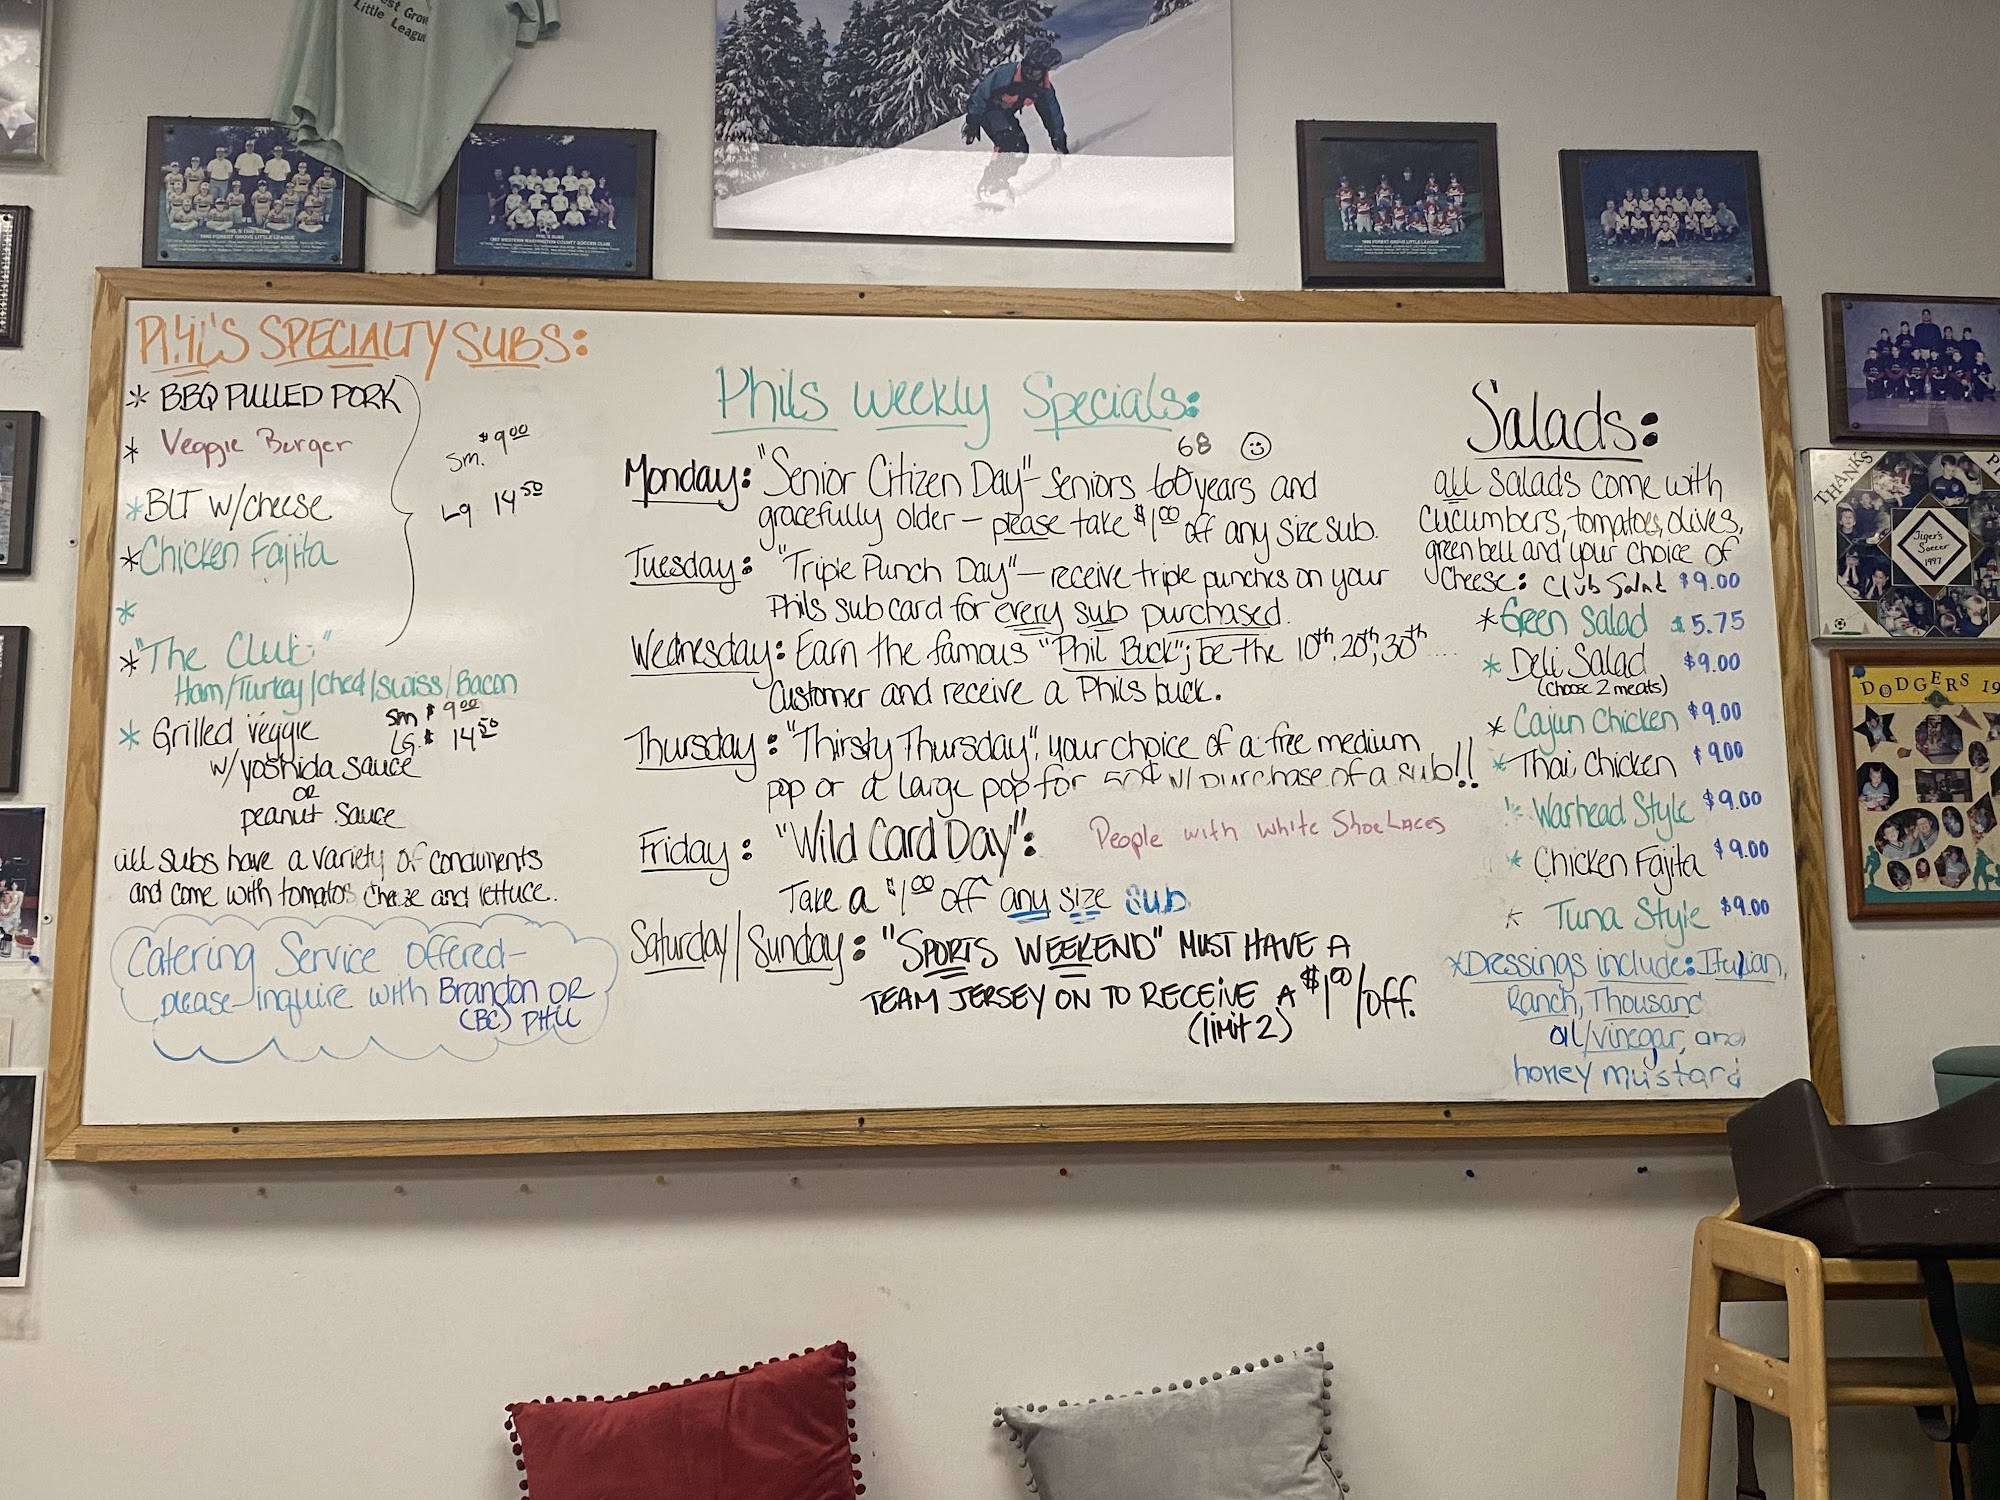 est Grove
Little League
PHIL'S SPECIALTY SUBS:
* BBQ PULLED PORK
* Veggie Burger
sm. $9.00
* BLT w/cheese
Lg 14.50
* Chicken Fajita
*
* "The Club"
Ham/Turkey/ched/swiss/Bacon
* Grilled veggie
sm $9.00
LG. $ 14.50
w/yoshida sauce
OR
peanut sauce
all subs have a variety of condiments
and come with tomatos cheese and lettuce.
Catering Service offered-
please inquire with Brandon OR
(BC) PHIL
Phils Weekly Specials:
68
Monday: "Senior Citizen Day"- seniors 60 years and
gracefully older - please take $1.00 off any size sub.
Tuesday: "Triple Punch Day" - receive triple punches on your
Phils sub card for every sub purchased.
Wednesday: Earn the famous "Phil Buck"; be the 10th, 20th, 30th....
customer and receive a Phils buck.
Thursday: "Thirsty Thursday", your choice of a free medium
pop or a large pop for 50¢ w/ purchase of a sub!!
Friday: "Wild Card Day": People with white ShoeLaces
Take a $1.00 off any size sub
Saturday/Sunday: "SPORTS WEEKEND" MUST HAVE A
TEAM JERSEY ON TO RECEIVE A $1.00/off.
(limit 2)
Salads:
all salads come with
cucumbers, tomatoes, olives,
green bell and your choice of
cheese: Club Salad $9.00
* Green Salad $5.75
* Deli Salad $9.00
(choose 2 meats)
* Cajun Chicken $9.00
* Thai Chicken $9.00
* Warhead Style $9.00
* Chicken Fajita $9.00
* Tuna Style $9.00
* Dressings include: Italian,
Ranch, Thousand
oil/vinegar, and
honey mustard
THANKS
Tiger's
Soccer
1997
DODGERS 19